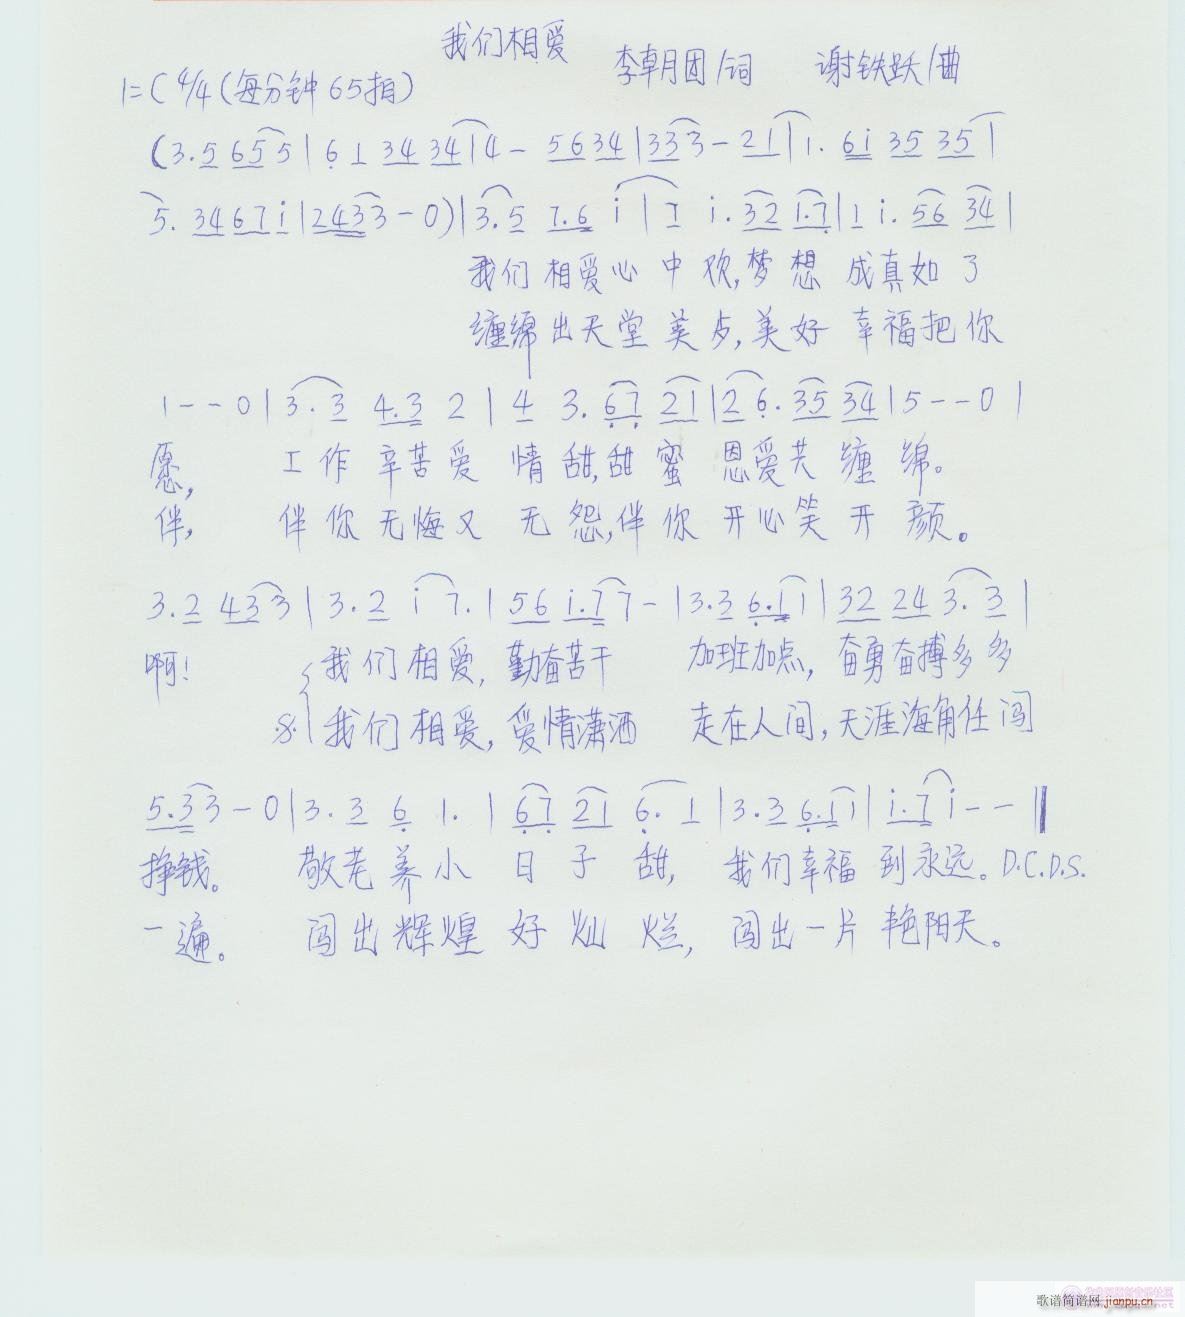 我们相爱
李朝月团/词 谢铁跃/曲
1=C 4/4 (每分钟65拍)
(3.5 655|61 34 34|4- 5634|333-21|1. 6i 35 35|
5. 3467i|2433-0)|3.5 7.6 i|1 i.32 i.7|1 i. 56 34|
我们相爱心中欢,梦想 成真如了
缠绵出天堂美步,美好 幸福把你
1--0|3.3 4.3 2|4 3.67 21|26.35 34|5--0|
愿, 工作 辛苦爱 情甜,甜蜜 恩爱共缠绵。
伴, 伴你无悔又 无怨,伴你 开心笑开颜。
3.2 433|3.2 i7.|56 i.77-|3.3 6.11|32 24 3.3|
啊! 我们相爱,勤奋苦干 加班加点,奋勇奋搏多多
我们相爱,爱情潇洒 走在人间,天涯海角任闯
5.33-0|3.3 6 1.|67 21 6.1|3.3 6.11|i.7i--||
挣钱。 敬老养小 日子甜, 我们幸福到永远。D.C.D.S.
一遍。 闯出辉煌好灿烂, 闯出一片艳阳天。
歌谱简谱网 jianpu.cn